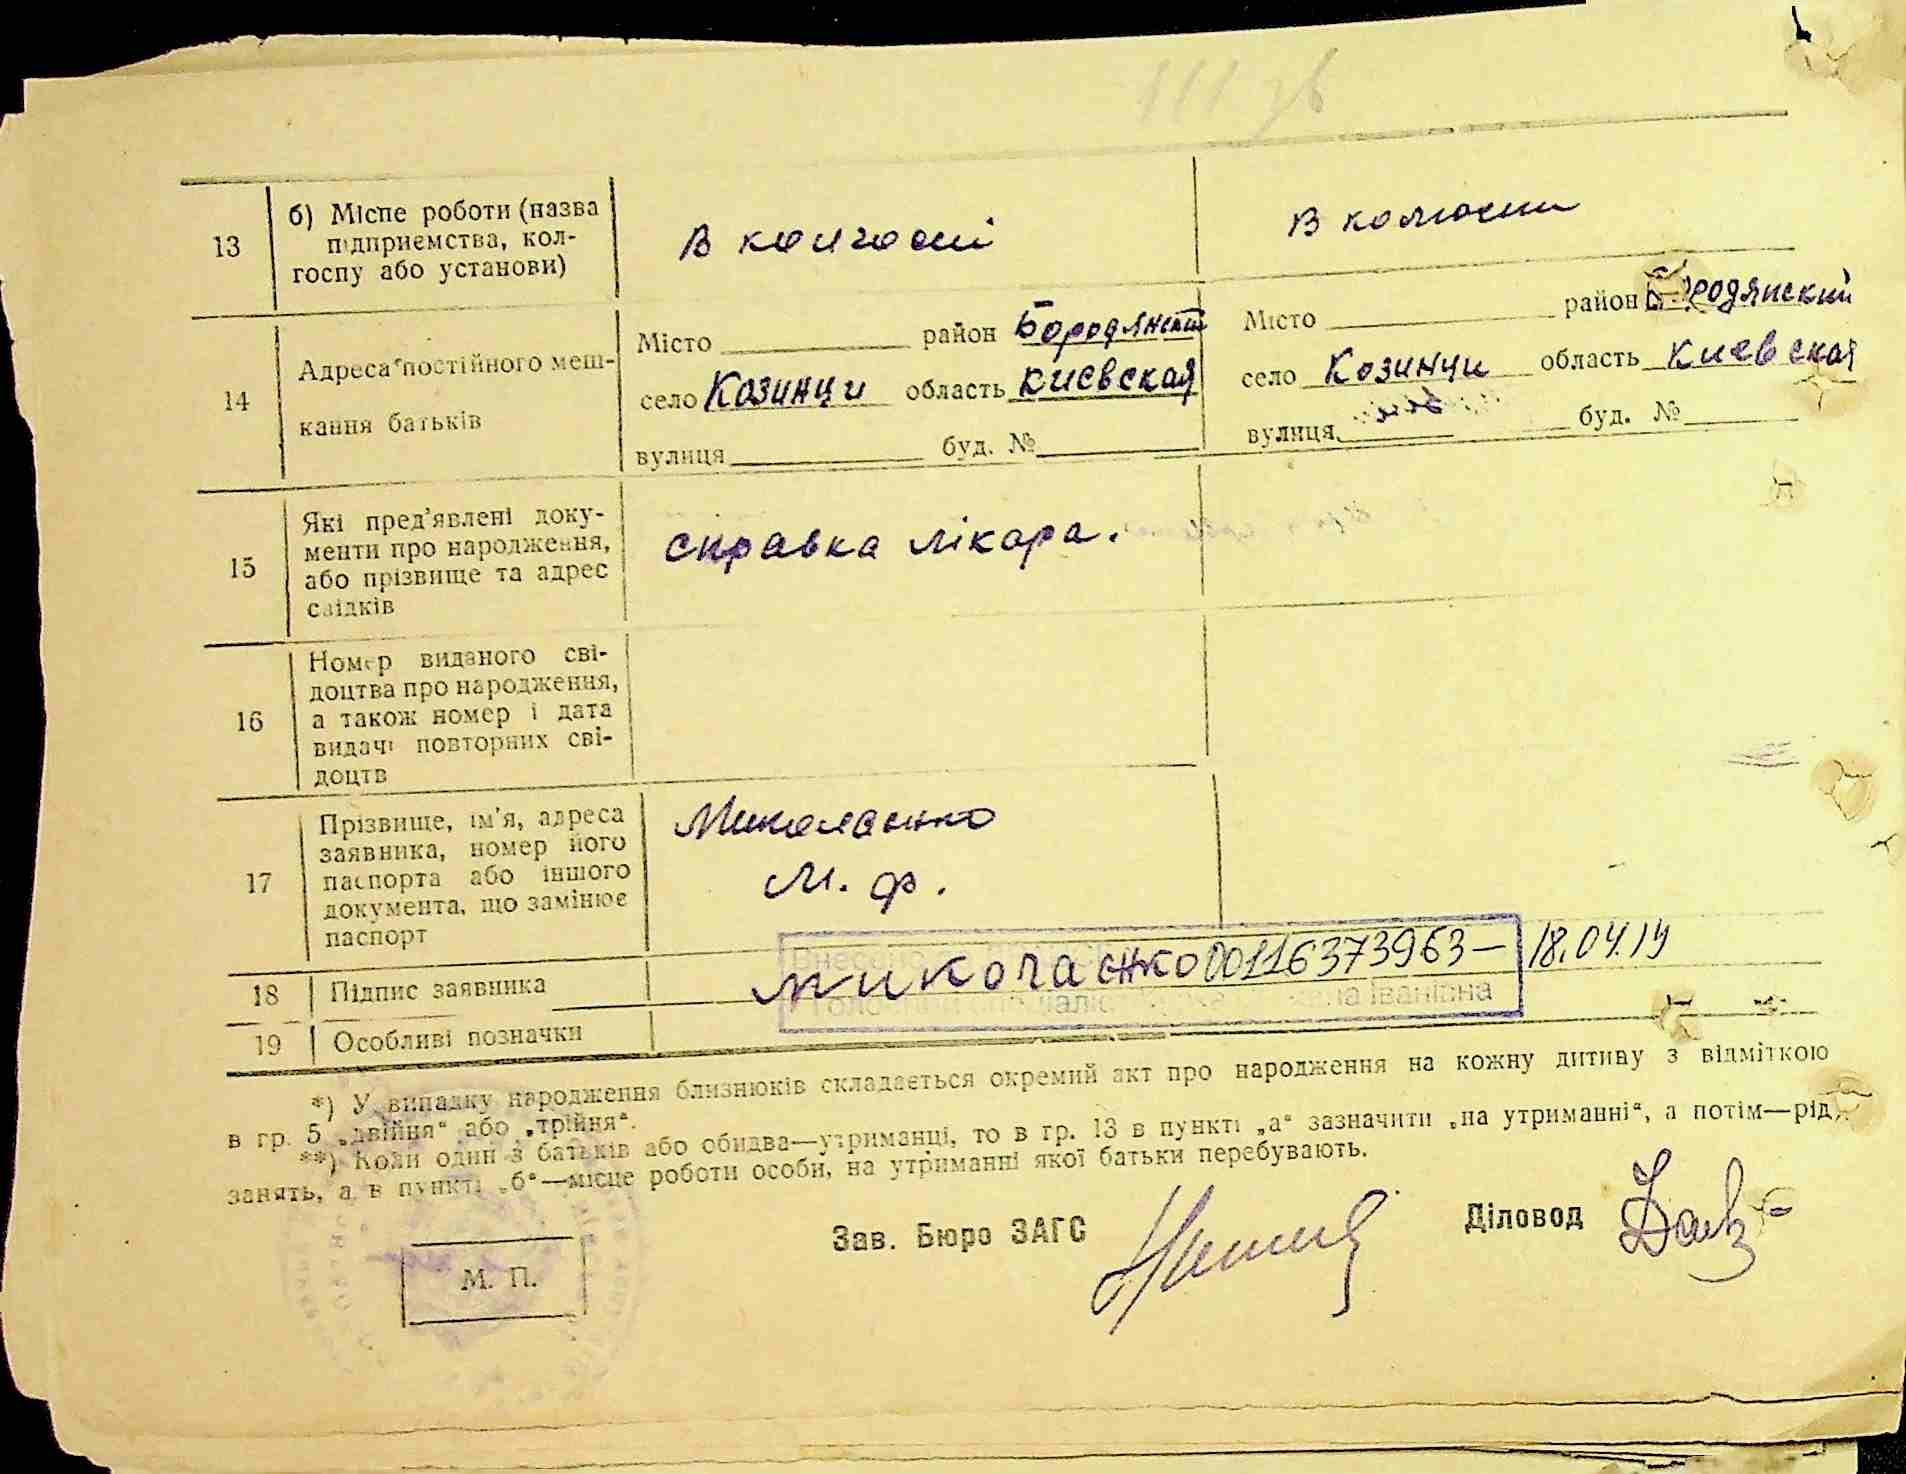 13
б) Місце роботи (назва
підприємства, кол-
госпу або установи)
В колгоспі
В колгоспи
14
Адреса постійного меш-
кання батьків
Місто район Бородянский
село Козинци область Киевская
вулиця буд. №
Місто район Бородянский
село Козинци область Киевская
вулиця буд. №
15
Які пред'явлені доку-
менти про народження,
або прізвище та адрес
свідків
справка лікара.
16
Номер виданого сві-
доцтва про народження,
а також номер і дата
видачі повторних сві-
доцтв
17
Прізвище, ім'я, адреса
заявника, номер його
паспорта або іншого
документа, що замінює
паспорт
Миколаенко
М. Ф.
18
Підпис заявника
Миколаенко 00116373963— 18.04.19
Внесено
Іванівна
19
Особливі позначки
*) У випадку народження близнюків складається окремий акт про народження на кожну дитину з відміткою
в гр. 5 „двійня“ або „трійня“.
**) Коли один з батьків або обидва—утриманці, то в гр. 13 в пункті „а“ зазначити „на утриманні“, а потім—рід
занять, а в пункті „б“—місце роботи особи, на утриманні якої батьки перебувають.
Зав. Бюро ЗАГС
Діловод
М. П.